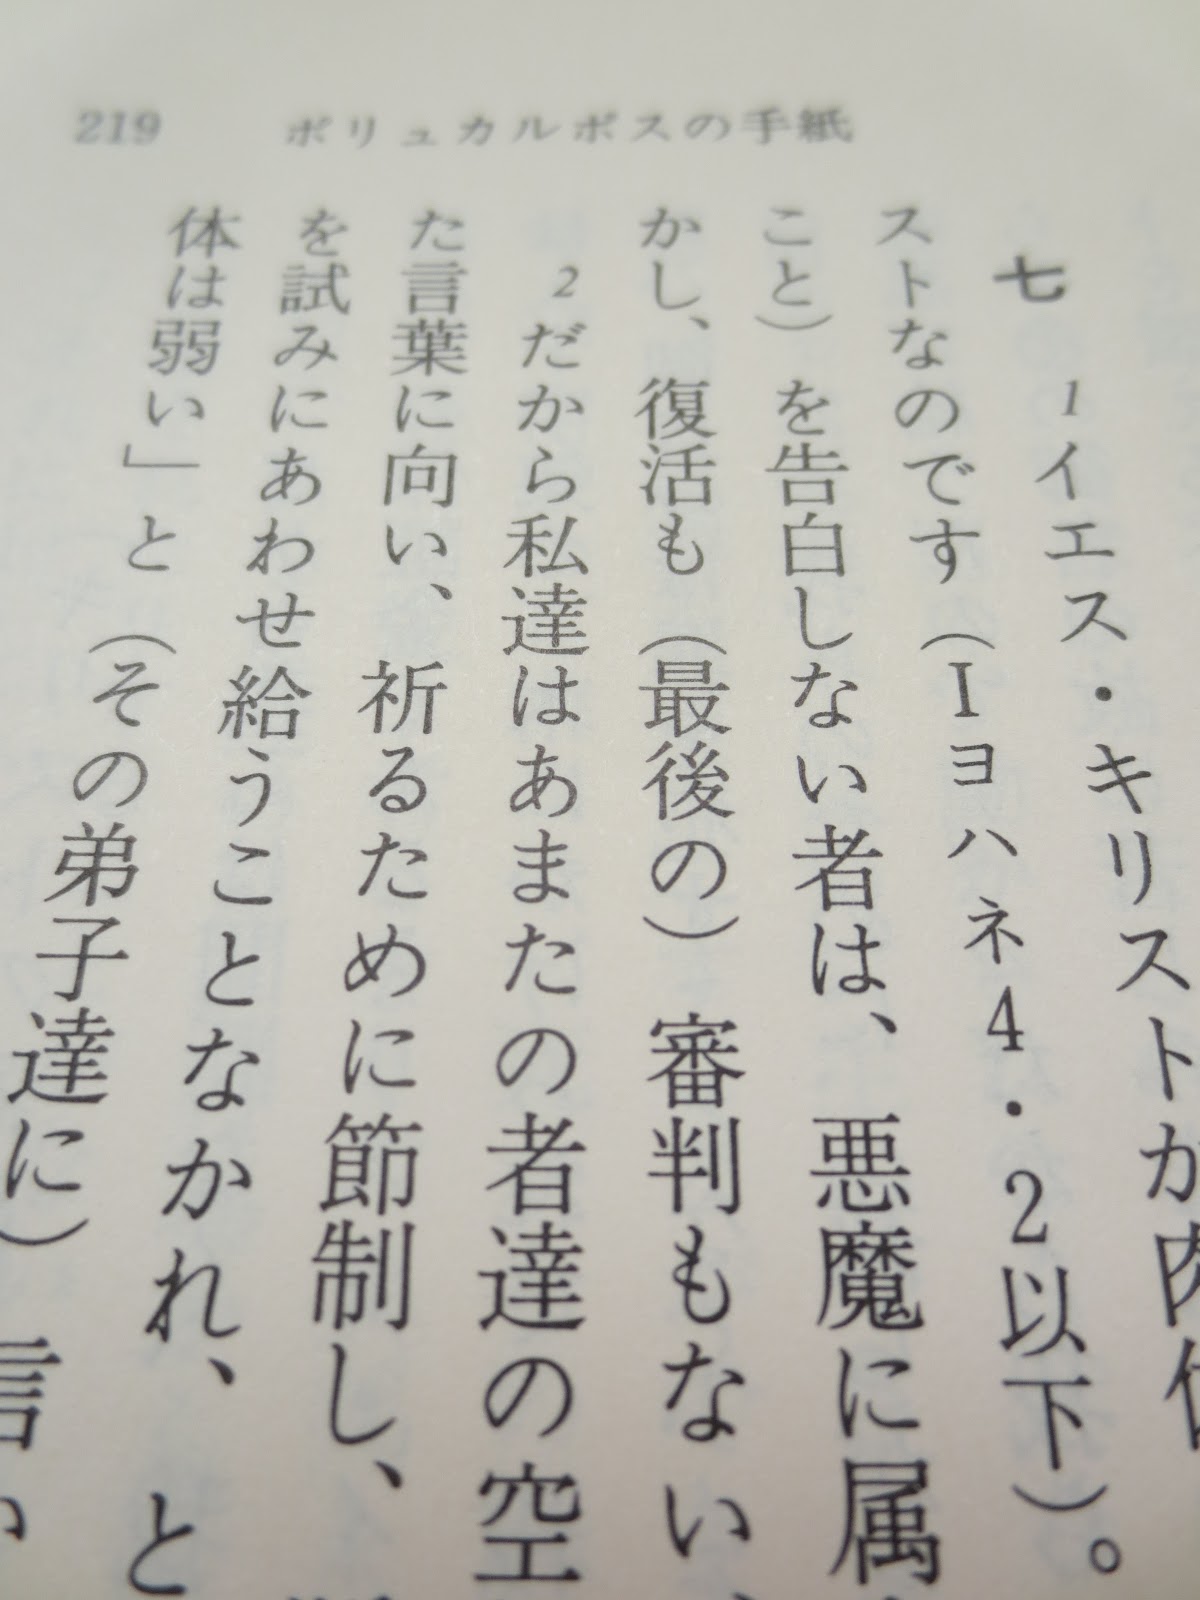 219 ポリュカルポスの手紙
七 1イエス・キリストが肉
ストなのです（Ⅰヨハネ4・2以下）。
こと）を告白しない者は、悪魔に属
かし、復活も（最後の）審判もない
2だから私達はあまたの者達の空
た言葉に向い、祈るために節制し、
を試みにあわせ給うことなかれ、と
体は弱い」と（その弟子達に）言